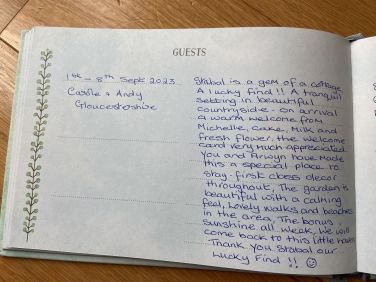 GUESTS
1st - 8th Sept 2023
Carole & Andy
Gloucestershire
Stabal is a gem of a cottage
A lucky find!! A tranquil
setting in beautiful
countryside - on arrival
a warm welcome from
Michelle, cake, milk and
fresh flower. the welcome
card very much appreciated
You and Arwyn have made
this a special place to
stay. first class decor
throughout, The garden is
beautiful with a calming
feel, Lovely walks and beaches
in the area, The bonus
sunshine all week, We will
come back to this little haven
Thank you Stabal our
Lucky Find !! ☺